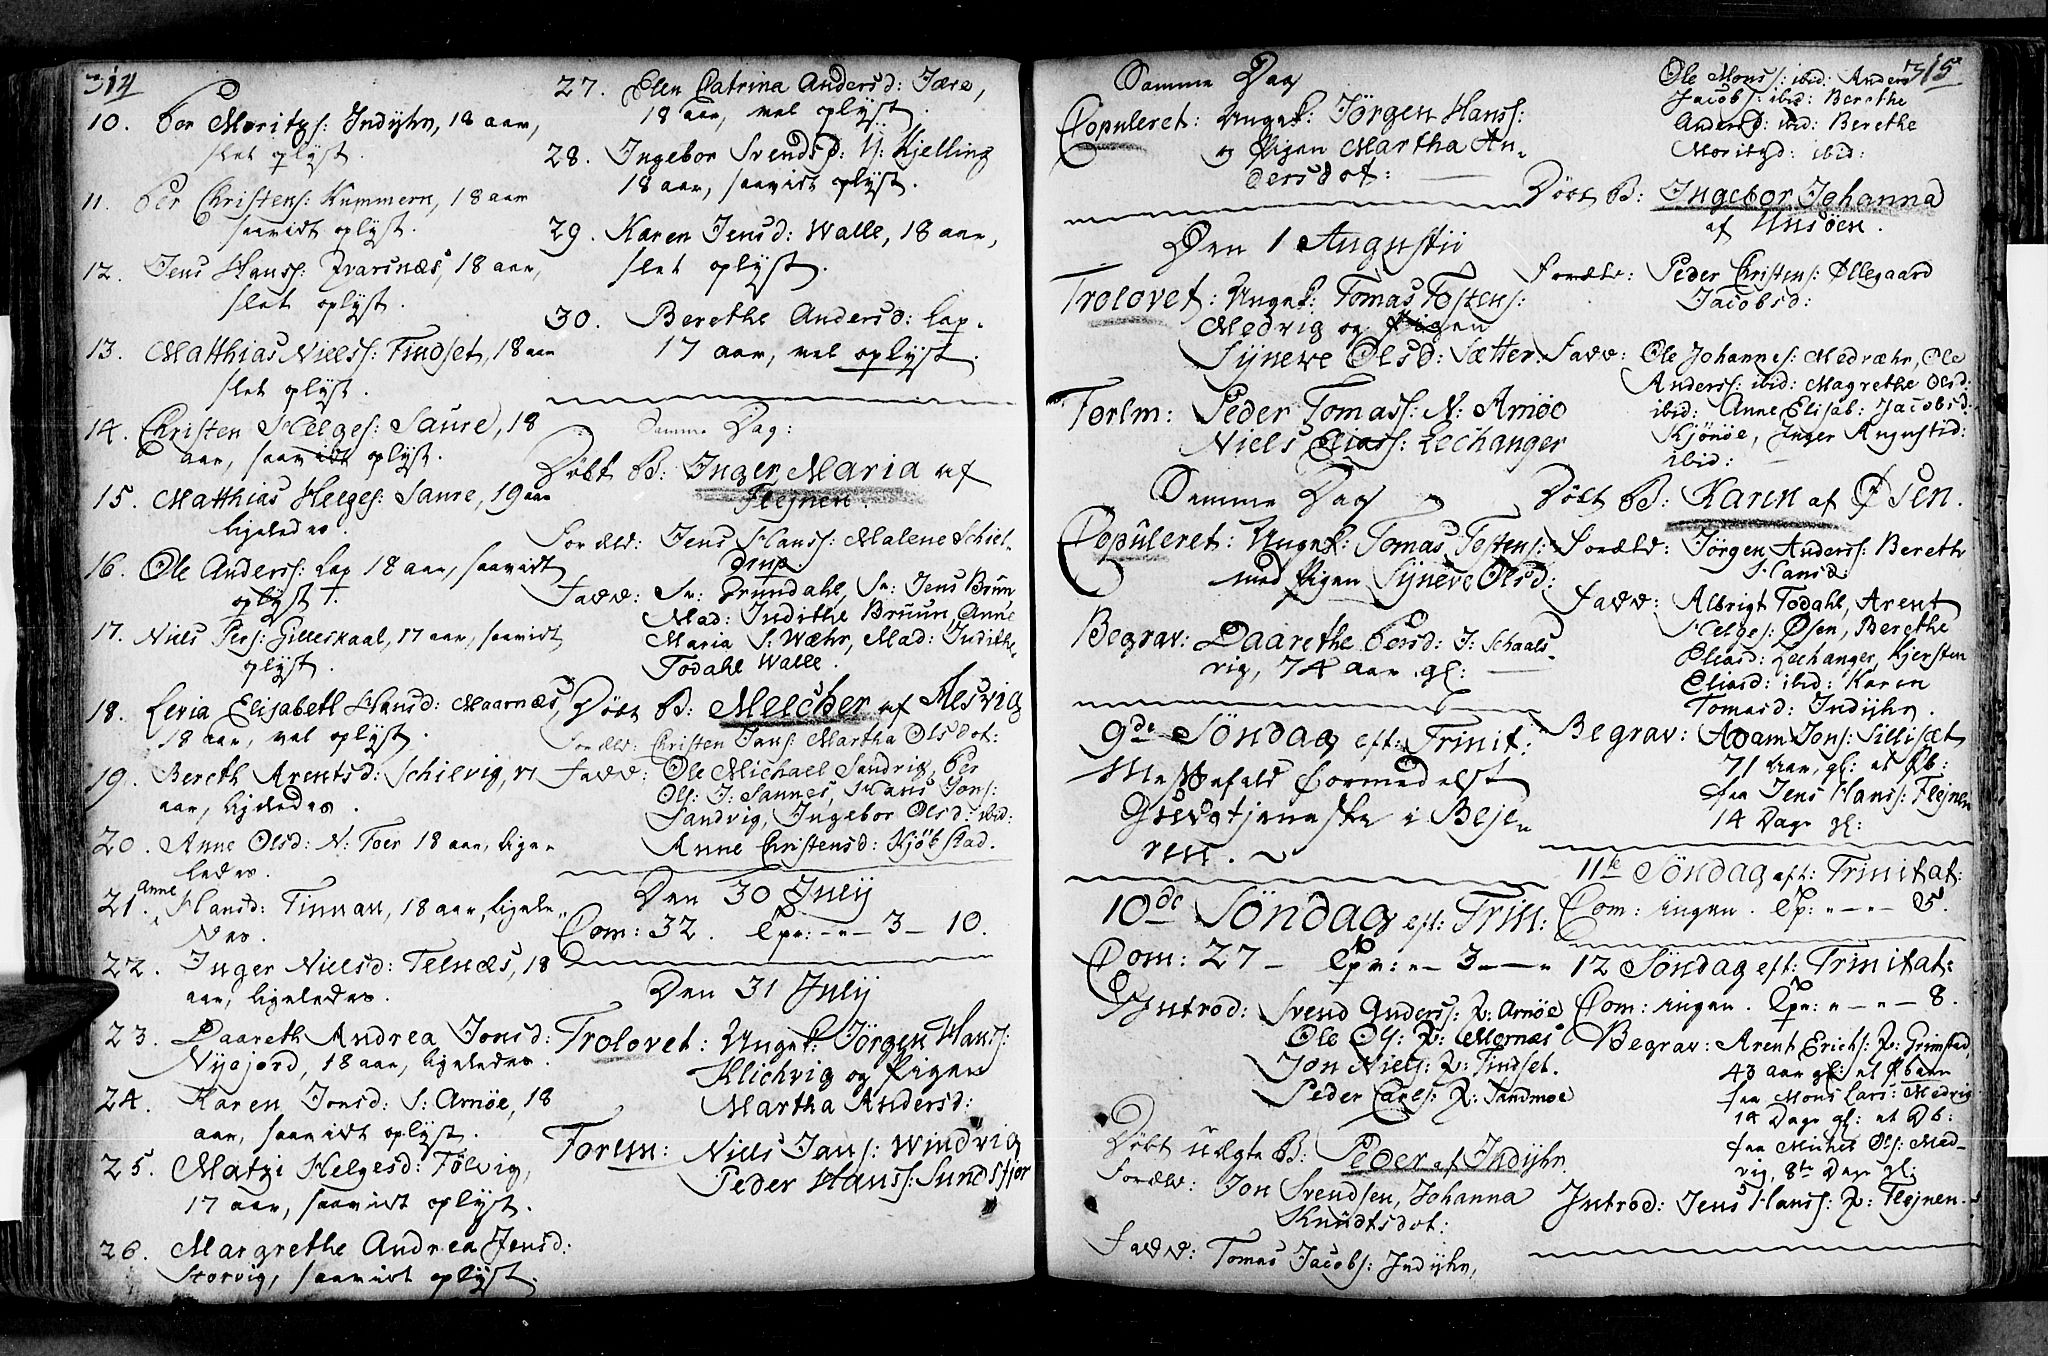 314
10. Per Moritzs: Indijhr, 18 aar,
slet oplyst.
11. Per Christens: Kummern, 18 aar
saavidt oplyst.
12. Jens Hanss: Qvarsnæs, 18 aar,
slet oplyst.
13. Matthias Nielss: Tindset, 18 aar
slet oplyst.
14. Christen Helges: Saure, 18
aar, saavidt oplyst.
15. Matthias Helges: Saure, 19 aar
ligeledes.
16. Ole Anderss: Lap 18 aar, saavidt
oplyst.
17. Niels Pers: Gilleskaal, 17 aar, saavidt
oplyst.
18. Elisabeth Hansd: Maarnæs,
18 aar, vel oplyst.
19. Bereth Arentsd: Schielvig,
aar, ligeledes.
20. Anne Olsd: N: Toer 18 aar, lige-
ledes.
21. Anne Hansd: Finnan, 18 aar, ligele-
des.
22. Inger Nielsd: Telnæs, 18
aar, ligeledes.
23. Daareth Andrea Jonsd:
Nygjord, 18 aar, ligeledes.
24. Karen Jonsd: S: Arnøe, 18
aar, saavidt oplyst.
25. Matzi Helgesd: Tølvig,
17 aar, saavidt oplyst.
26. Margrethe Andrea Jensd:
Storvig, saavidt oplyst.
27. Elen Catrina Andersd: Jære,
18 aar, vel oplyst.
28. Ingebor Svendsd: N: Kjelling
18 aar, saavidt oplyst.
29. Karen Jensd: Walle, 18 aar,
slet oplyst.
30. Berethe Andersd: Lap.
17 aar, vel oplyst.
Samme Dag:
Døbt B: Inger Maria af
Flejnen.
Foræld: Jens Hanss: Malene Schiel-
drup.
Fadd: Sr: Trundahl, Sr: Jens Bruun
Mad: Indithe Bruun, Anne
Maria S: Wæhr, Mad: Indithe
Todahl Walle.
Døbt B: Melcher af Alsvig
Foræld: Christen Jans: Martha Olsdot:
Fadd: Ole Michael Sandvig, Per
Ols: I: Sannes, Hans Jons:
Sandvig, Ingebor Olsd: ibid:
Anne Christensd: Kjøbstad.
Den 30 Julij
Com: 32. Cpn: - „ - 3 - 10.
Den 31 Julij
Trolovet: Ungk: Jørgen Hans:
Klichvig og Pigen
Martha Andersd:
Forlm: Niels Jans: Windvig
Peder Hanss: Sundsfjor
Samme Dag
Copuleret: Ungk: Jørgen Hanss:
og Pigen Martha An-
dersdot:
Den 1 Augustii
Trolovet: Ungk: Tomas Tostens:
Medvig og Pigen
Sijneve Olsd: Sætter.
Forlm: Peder Tomass: N: Arnøe
Niels Eliass: Lechanger
Samme Dag
Copuleret: Ungk: Tomas Tostens:
med Pigen Sijneve Olsd:
Begrav: Daarethe Persd: I: Schaals-
vig, 74 aar gl:
9de Søndag eft: Trinit:
Messefald formedelst
Gudstjeneste i Beje-
ren.
10de Søndag eft: Trin:
Com: 27 - Cpn: „ - 3 - „
Introd: Svend Anderss: Q: Arnøe
Ole Ols: Q: Mornæs
Jon Niels: Q: Tindset.
Peder Carls: Q: Sandmoe
Døbt uægte B: Peder af Indijhr.
Foræld: Jon Svendsen, Johanna
Knudtsdot:
Fadd: Tomas Jacobs: Indijhr,
315
Ole Monss: ibid: Anders
Jacobs: ibid: Berethe
Andersd: ibid: Berethe
Moritzd: ibid:
Døbt B: Ingebor Johanna
af Unsøen.
Foræld: Peder Christens: Øllegaard
Jacobsd:
Fadd: Ole Johannes: Medræhr, Ole
Anderss: ibid: Magrethe Olsd:
ibid: Anne Elisab: Jacobsd:
Kjønøe, Inger Augustid:
ibid:
Døbt B: Karen af Øsen.
Foræld: Jørgen Anderss: Bereth
Hansd:
Fadd: Albrigt Todahl, Arent
Helges: Øsen, Berethe
Eliasd: Lechanger, Kjersten
Eliasd: ibid: Karen
Tomasd: Indijhr.
Begrav: Adam Jons: Sillisæt
71 aar, gl: et Øb:
faa Jens Hanss: Flejnen
14 Dage gl:
11te Søndag eft: Trinitat:
Com: ingen. Cp: „ - „ - 5.
12 Søndag eft: Trinitat:
Com: ingen. Cpn: „ - „ - 8.
Begrav: Arent Erichs: Q: Grimstad
43 aar gl: et Øbarn
faa Mons Lars: Medvig
14 Dage gl: et Db:
faa Michel Ols: Med-
vig, 8te Dage gl:
Introd: Jens Hanss: Q: Flejnen.